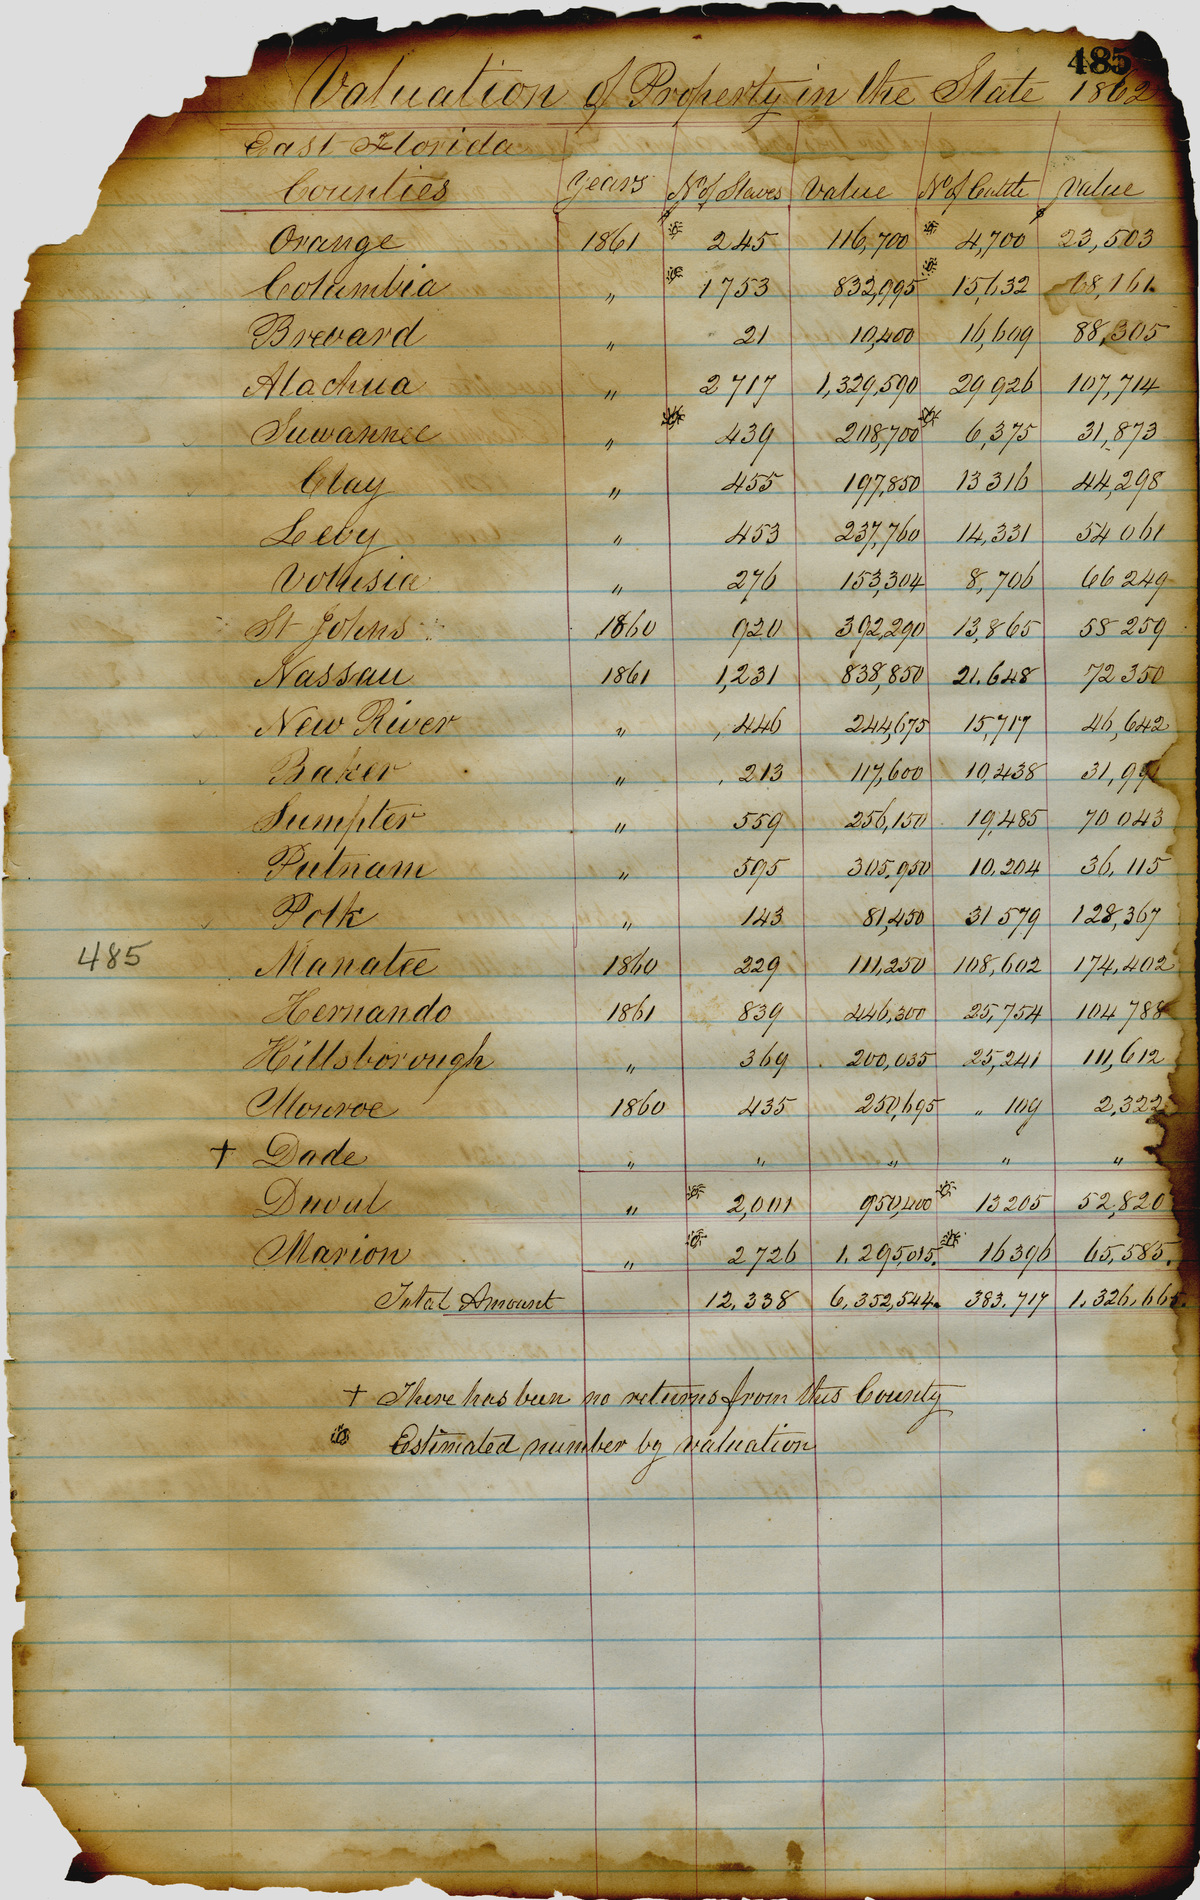 485
Valuation of Property in the State 1862
East Florida
Counties Years No of Slaves Value No of Cattle Value
Orange 1861 * 245 116,700 * 4,700 23,503
Columbia " * 1753 832,995 * 15,632 68,161
Brevard " 21 10,400 16,609 88,305
Alachua " 2717 1,329,590 29926 107,714
Suwannee " * 439 208,700 * 6,375 31,873
Clay " 455 197,850 13316 44,298
Levy " 453 237,760 14,331 54061
Volusia " 276 153,304 8,706 66249
St Johns 1860 920 392,290 13,865 58259
Nassau 1861 1,231 838,850 21.648 72350
New River " 446 244,675 15,717 46,642
Baker " 213 117,600 10,438 31,99
Sumpter " 559 256,150 19,485 70043
Putnam " 595 305,950 10,204 36,115
Polk " 143 81,450 31579 128,367
485
Manatee 1860 229 111,250 108,602 174,402
Hernando 1861 839 446,300 25,754 104788
Hillsborough " 369 200,035 25,241 111,612
Monroe 1860 435 250,695 " 109 2,322
† Dade " " " " "
Duval " * 2,001 950,400 * 13205 52,820
Marion " * 2726 1.295,015. * 16396 65,585.
Total Amount 12.338 6,352,544. 383.717 1.326,665.
† There has been no returns from this County
* Estimated number by valuation